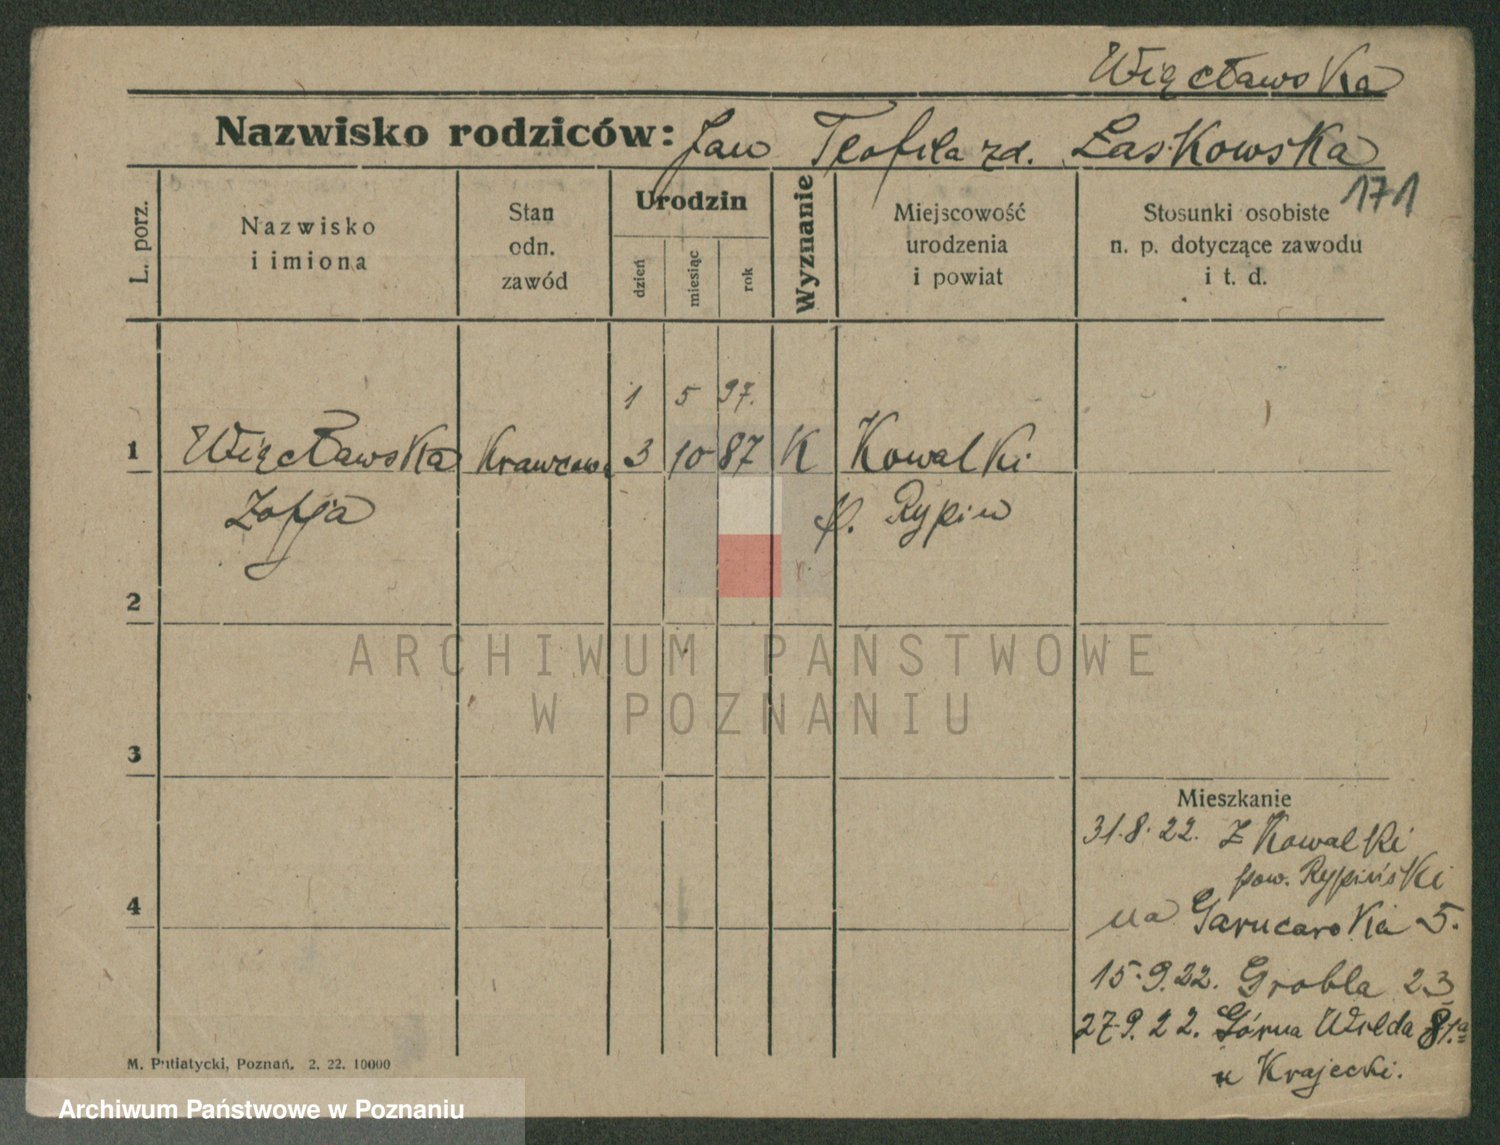 Więcławska
Nazwisko rodziców: Jan Teofila zd. Łaskowska
171
L. porz.
Nazwisko
i imiona
Stan
odn.
zawód
Urodzin
dzień
miesiąc
rok
Wyznanie
Miejscowość
urodzenia
i powiat
Stosunki osobiste
n. p. dotyczące zawodu
i t. d.
1 5 97.
1 Więcławska Krawcowa 3 10 87 K Kowalki
Zofja p. Rypin
2
ARCHIWUM PAŃSTWOWE
W POZNANIU
3
Mieszkanie
31.8.22. Z Kowalki
pow. Rypiński
4
na Garncarska 5.
15.9.22. Grobla 23
27.9.22. Górna Wilda 81.a
u Krajecki.
M. Putiatycki, Poznań. 2. 22. 10000
Archiwum Państwowe w Poznaniu